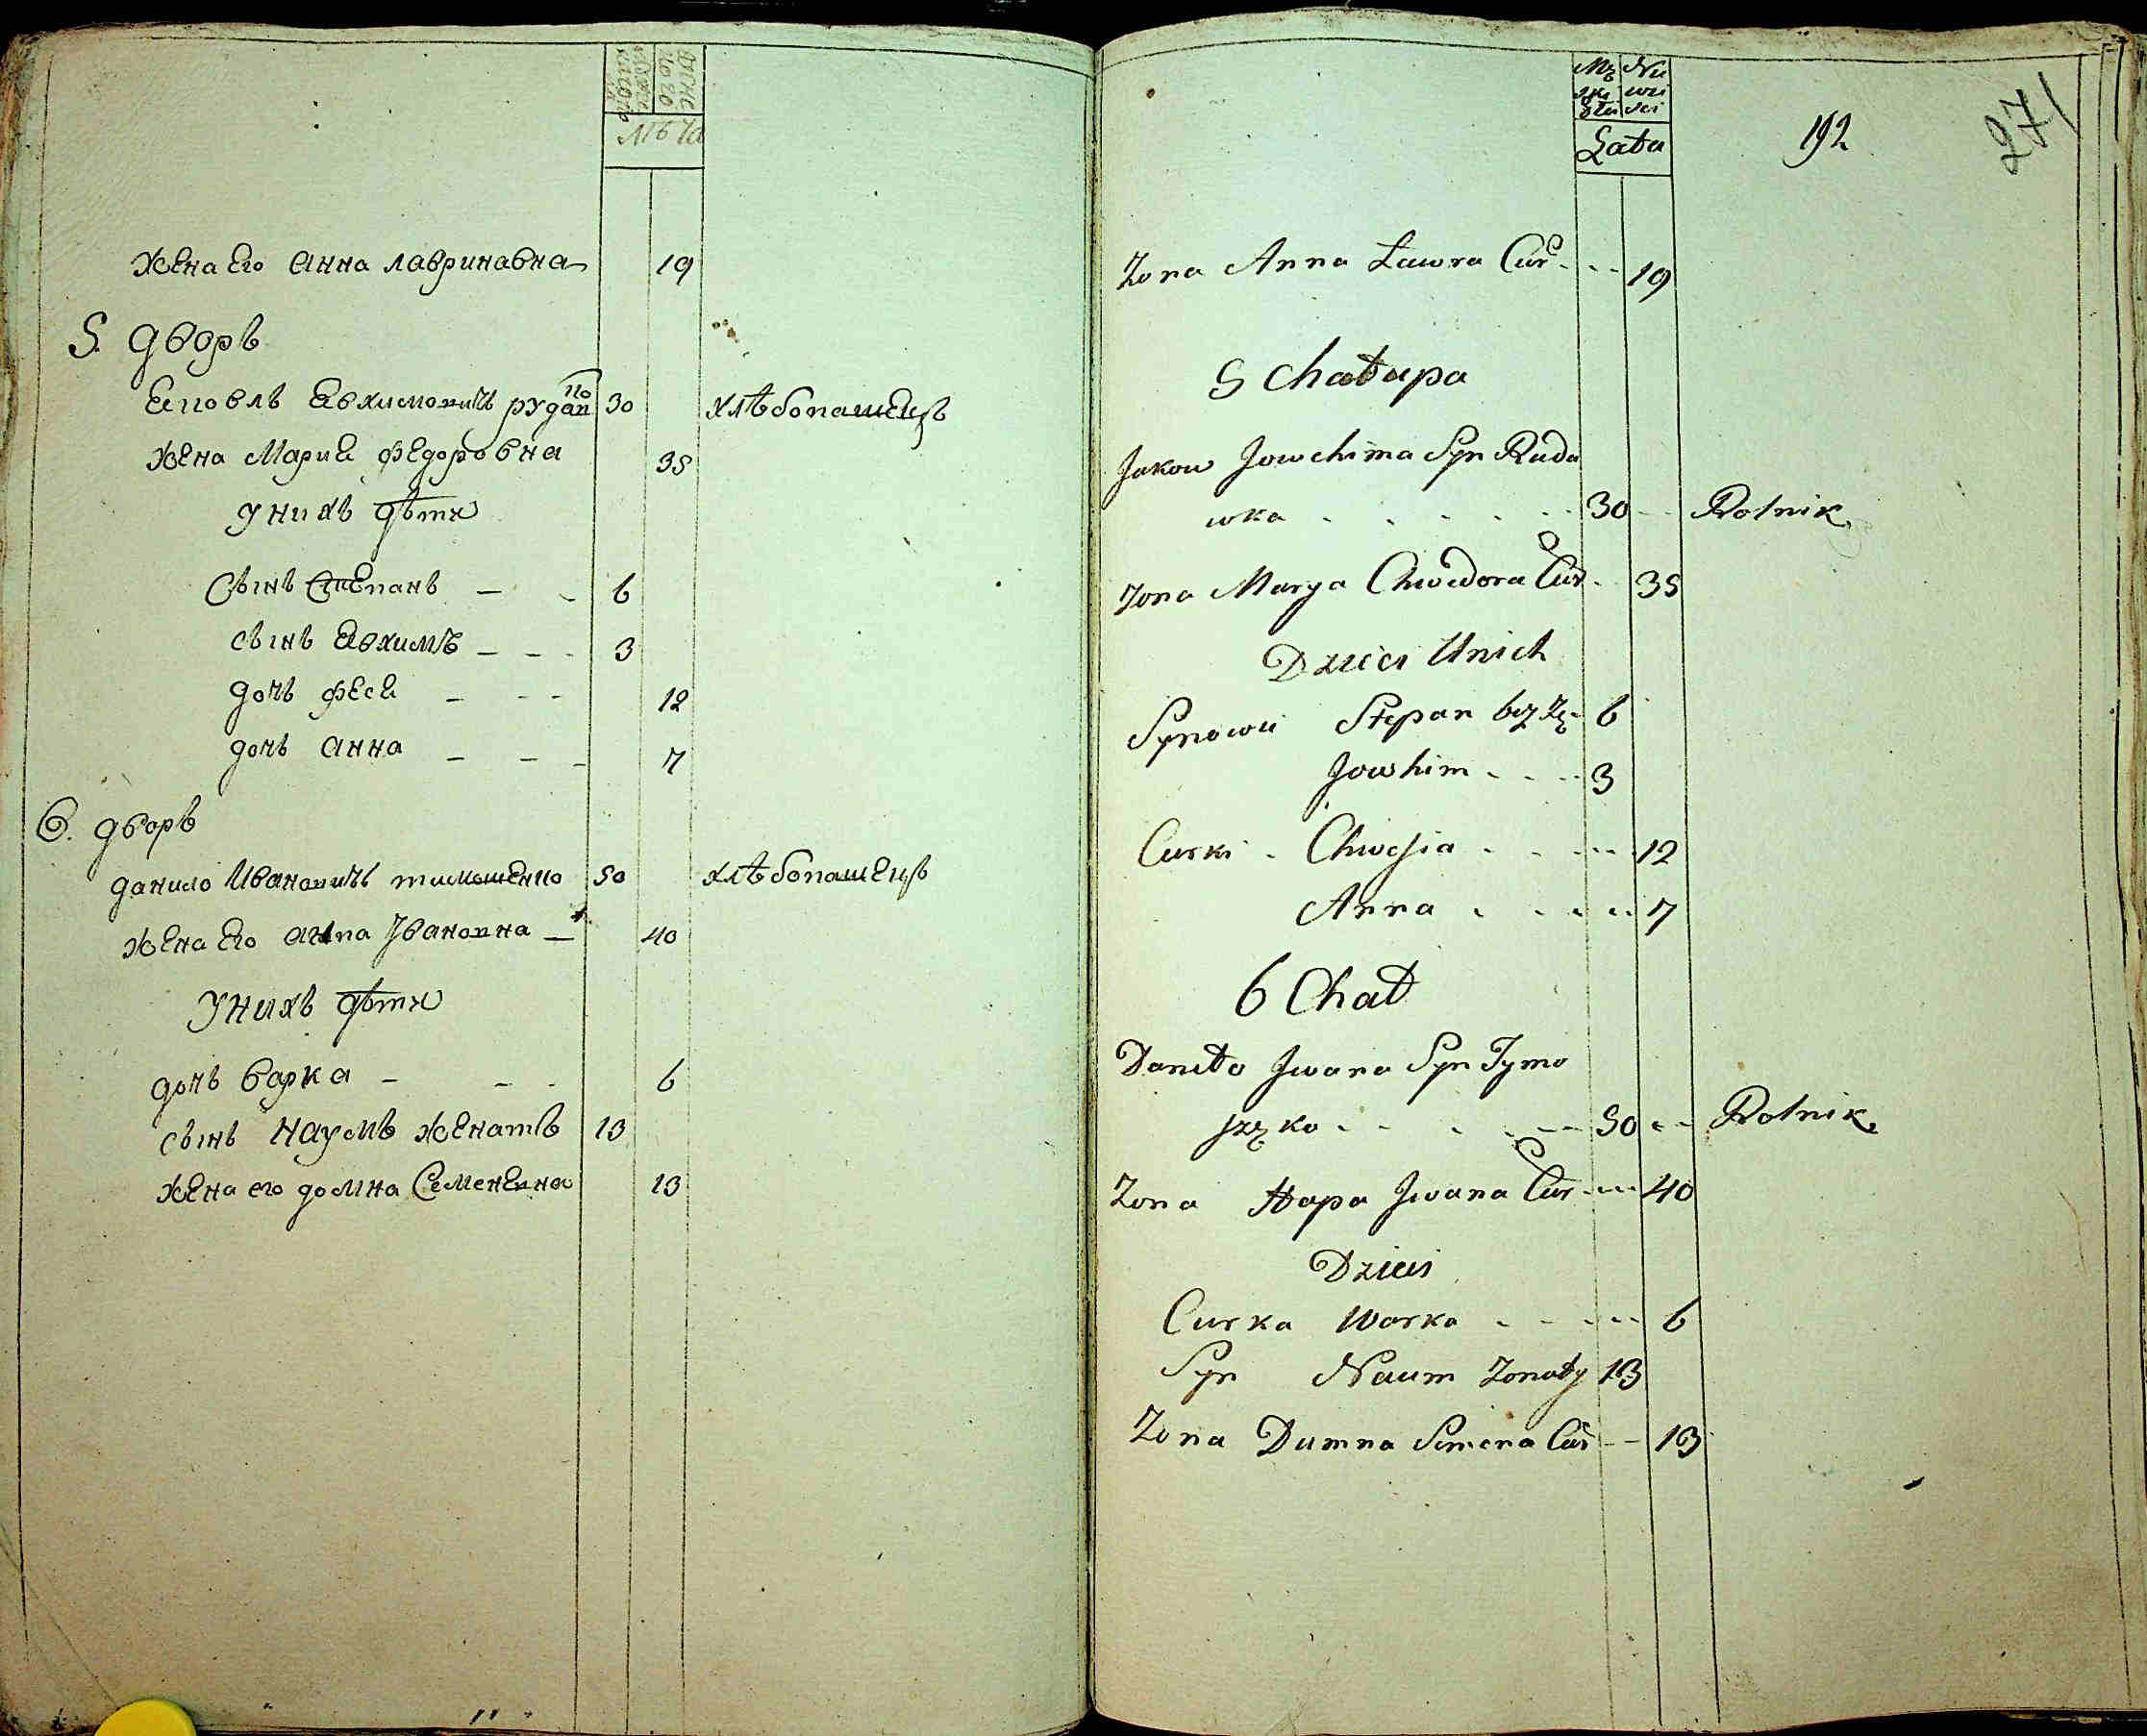 мужеска
женско
лѣта
жена Его анна лавринавна 19
5. дворъ
Яковъ Евхимовичъ рудако 30 хлѣбопашецъ
жена Мария федоровна 35
У нихъ дѣти
Сынъ Степанъ — - 6
сынъ Евхимъ — — - 3
дочь феся — - - 12
дочь анна — - - 7
6. дворъ
данило Ивановичъ тимошенко 50 хлѣбопашецъ
жена Его Iвановна — 40
У нихъ дѣти
дочь варка — - - 6
сынъ наумъ женатъ 13
жена его домна Семеневна 13
Męz Nie
sku wie
Płci sci
Lata
192
271
Zona Anna Ławra Cur - - - 19
5 Chałupa
Jakow Jowchima Syn Ruda
wka - - - - - - 30 - - Rolnik
Zona Marya Chwedora Cur - 35
Dzieci Unich
Synowie Stepan bez Zę - 6
Jowhim - - - - 3
Curki - Chwesia - - - - - 12
Anna - - - - - 7
6 Chał
Daniło Jwana Syn Tymo
szęko - - - - - - 50 - - Rolnik
Zona Hapa Jwana Cur - - - 40
Dzieci
Curka Warka - - - - - 6
Syn Naum Zonaty 13
Zona Dumna Semena Cur - - 13